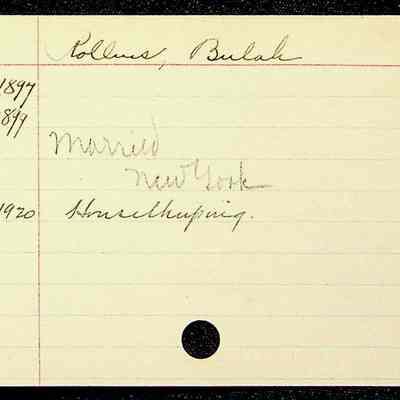 Rollins, Bulah
1897
1899
Married
New York
1920 Housekeeping.